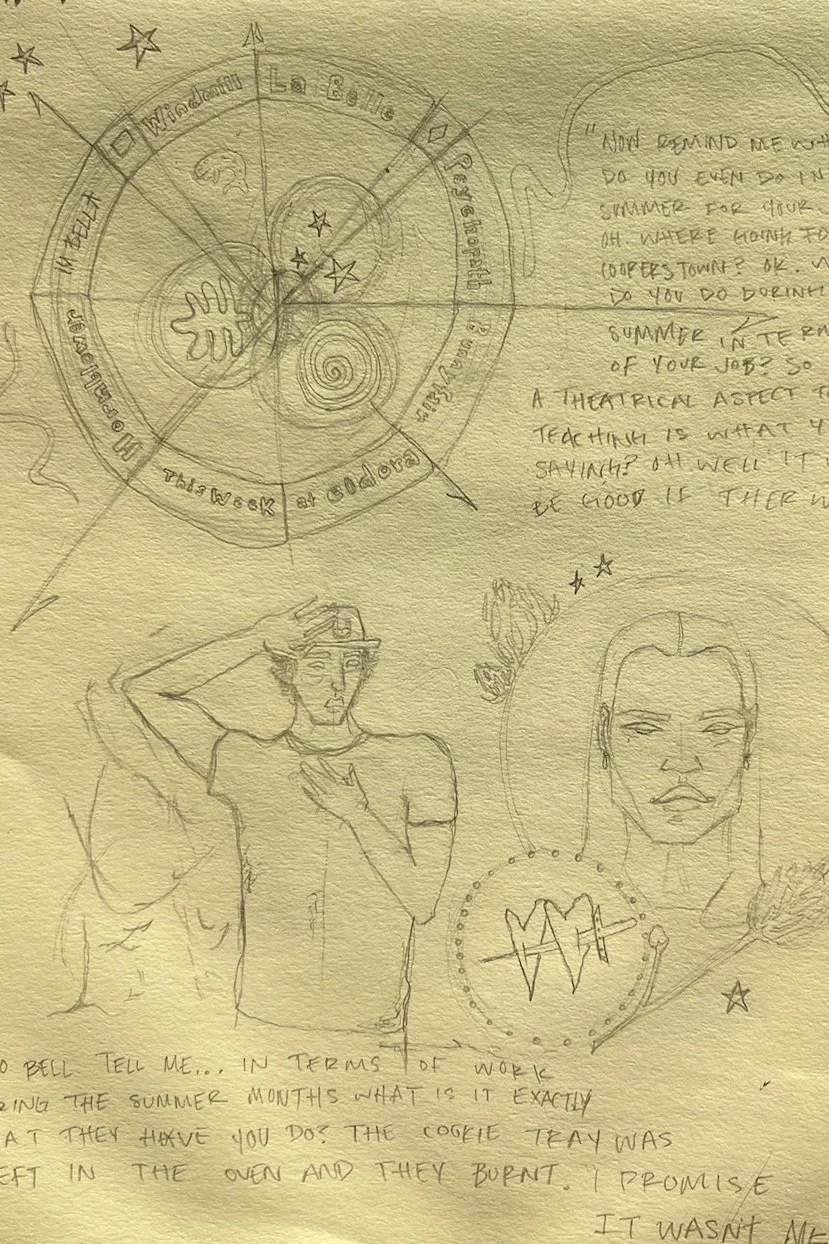 Windmill
La Belle
Psychopath
Bunnyfair
at eldora
This Week
Hornblower
IM BELLA
"NOW REMIND ME WHA
DO YOU EVEN DO IN
SUMMER FOR YOUR.
OH. WHERE GOING TO
COOPERSTOWN? OK. W
DO YOU DO DURING
SUMMER IN TERM
OF YOUR JOB? SO
A THEATRICAL ASPECT T
TEACHING IS WHAT Y
SAYING? OH WELL IT
BE GOOD IF THER W
O BELL. TELL ME... IN TERMS OF WORK
RING THE SUMMER MONTHS WHAT IS IT EXACTLY
AT THEY HAVE YOU DO? THE COOKIE TRAY WAS
EFT IN THE OVEN AND THEY BURNT. I PROMISE
IT WASNT ME